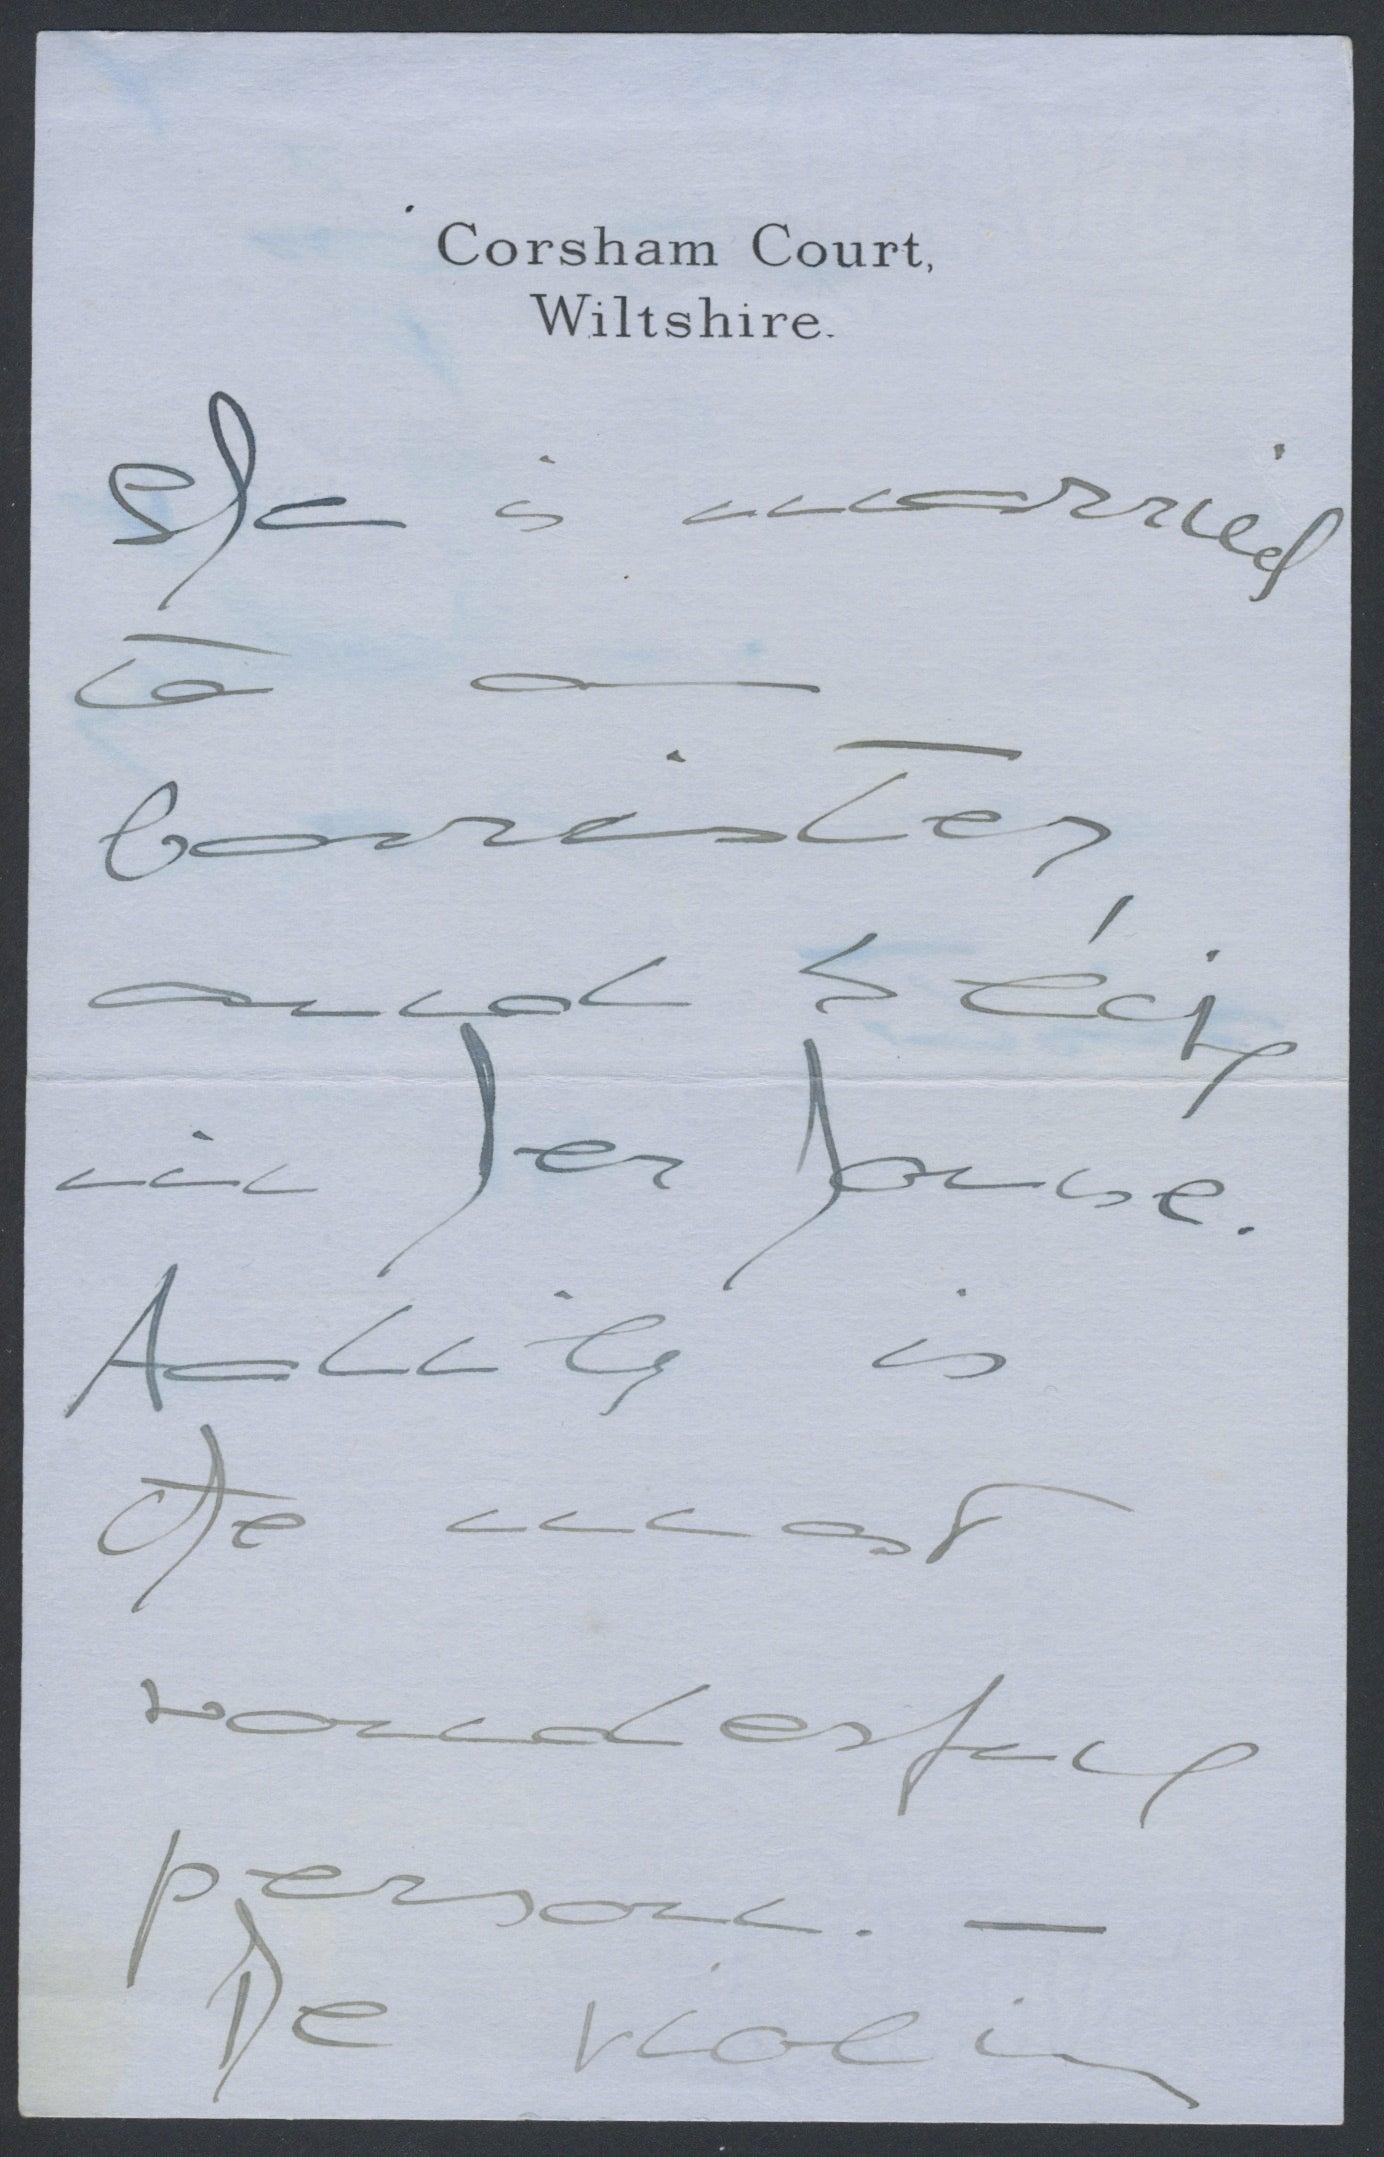 Corsham Court,
Wiltshire.
She is married
to a
barrister
and
in her house.
is
the most
wonderful
person. —
The violin